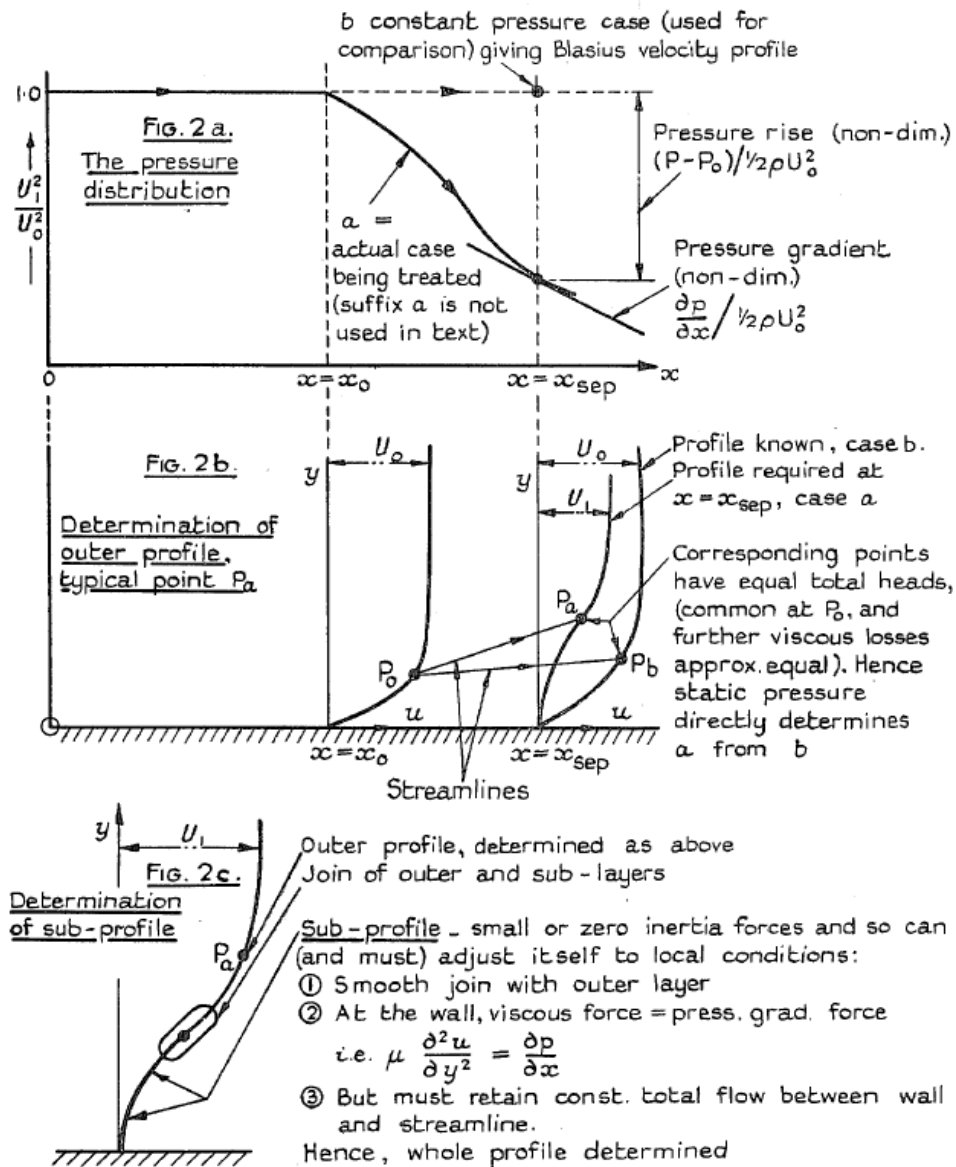 b constant pressure case (used for
comparison) giving Blasius velocity profile
1·0
FIG. 2a.
The pressure
distribution
U₁²/U₀²
a =
actual case
being treated
(suffix a is not
used in text)
Pressure rise (non-dim.)
(P-P₀)/½ρU₀²
Pressure gradient
(non-dim.)
∂p/∂x / ½ρU₀²
0
x=x₀
x=x_sep
x
FIG. 2b.
Determination of
outer profile,
typical point Pa
y
U₀
P₀
u
x=x₀
y
U₀
U₁
Pa
Pb
u
x=x_sep
Streamlines
Profile known, case b.
Profile required at
x=x_sep, case a
Corresponding points
have equal total heads,
(common at P₀, and
further viscous losses
approx. equal). Hence
static pressure
directly determines
a from b
y
U₁
FIG. 2c.
Determination
of sub-profile
Pa
Outer profile, determined as above
Join of outer and sub-layers
Sub-profile - small or zero inertia forces and so can
(and must) adjust itself to local conditions:
① Smooth join with outer layer
② At the wall, viscous force = press. grad. force
i.e. μ ∂²u/∂y² = ∂p/∂x
③ But must retain const. total flow between wall
and streamline.
Hence, whole profile determined